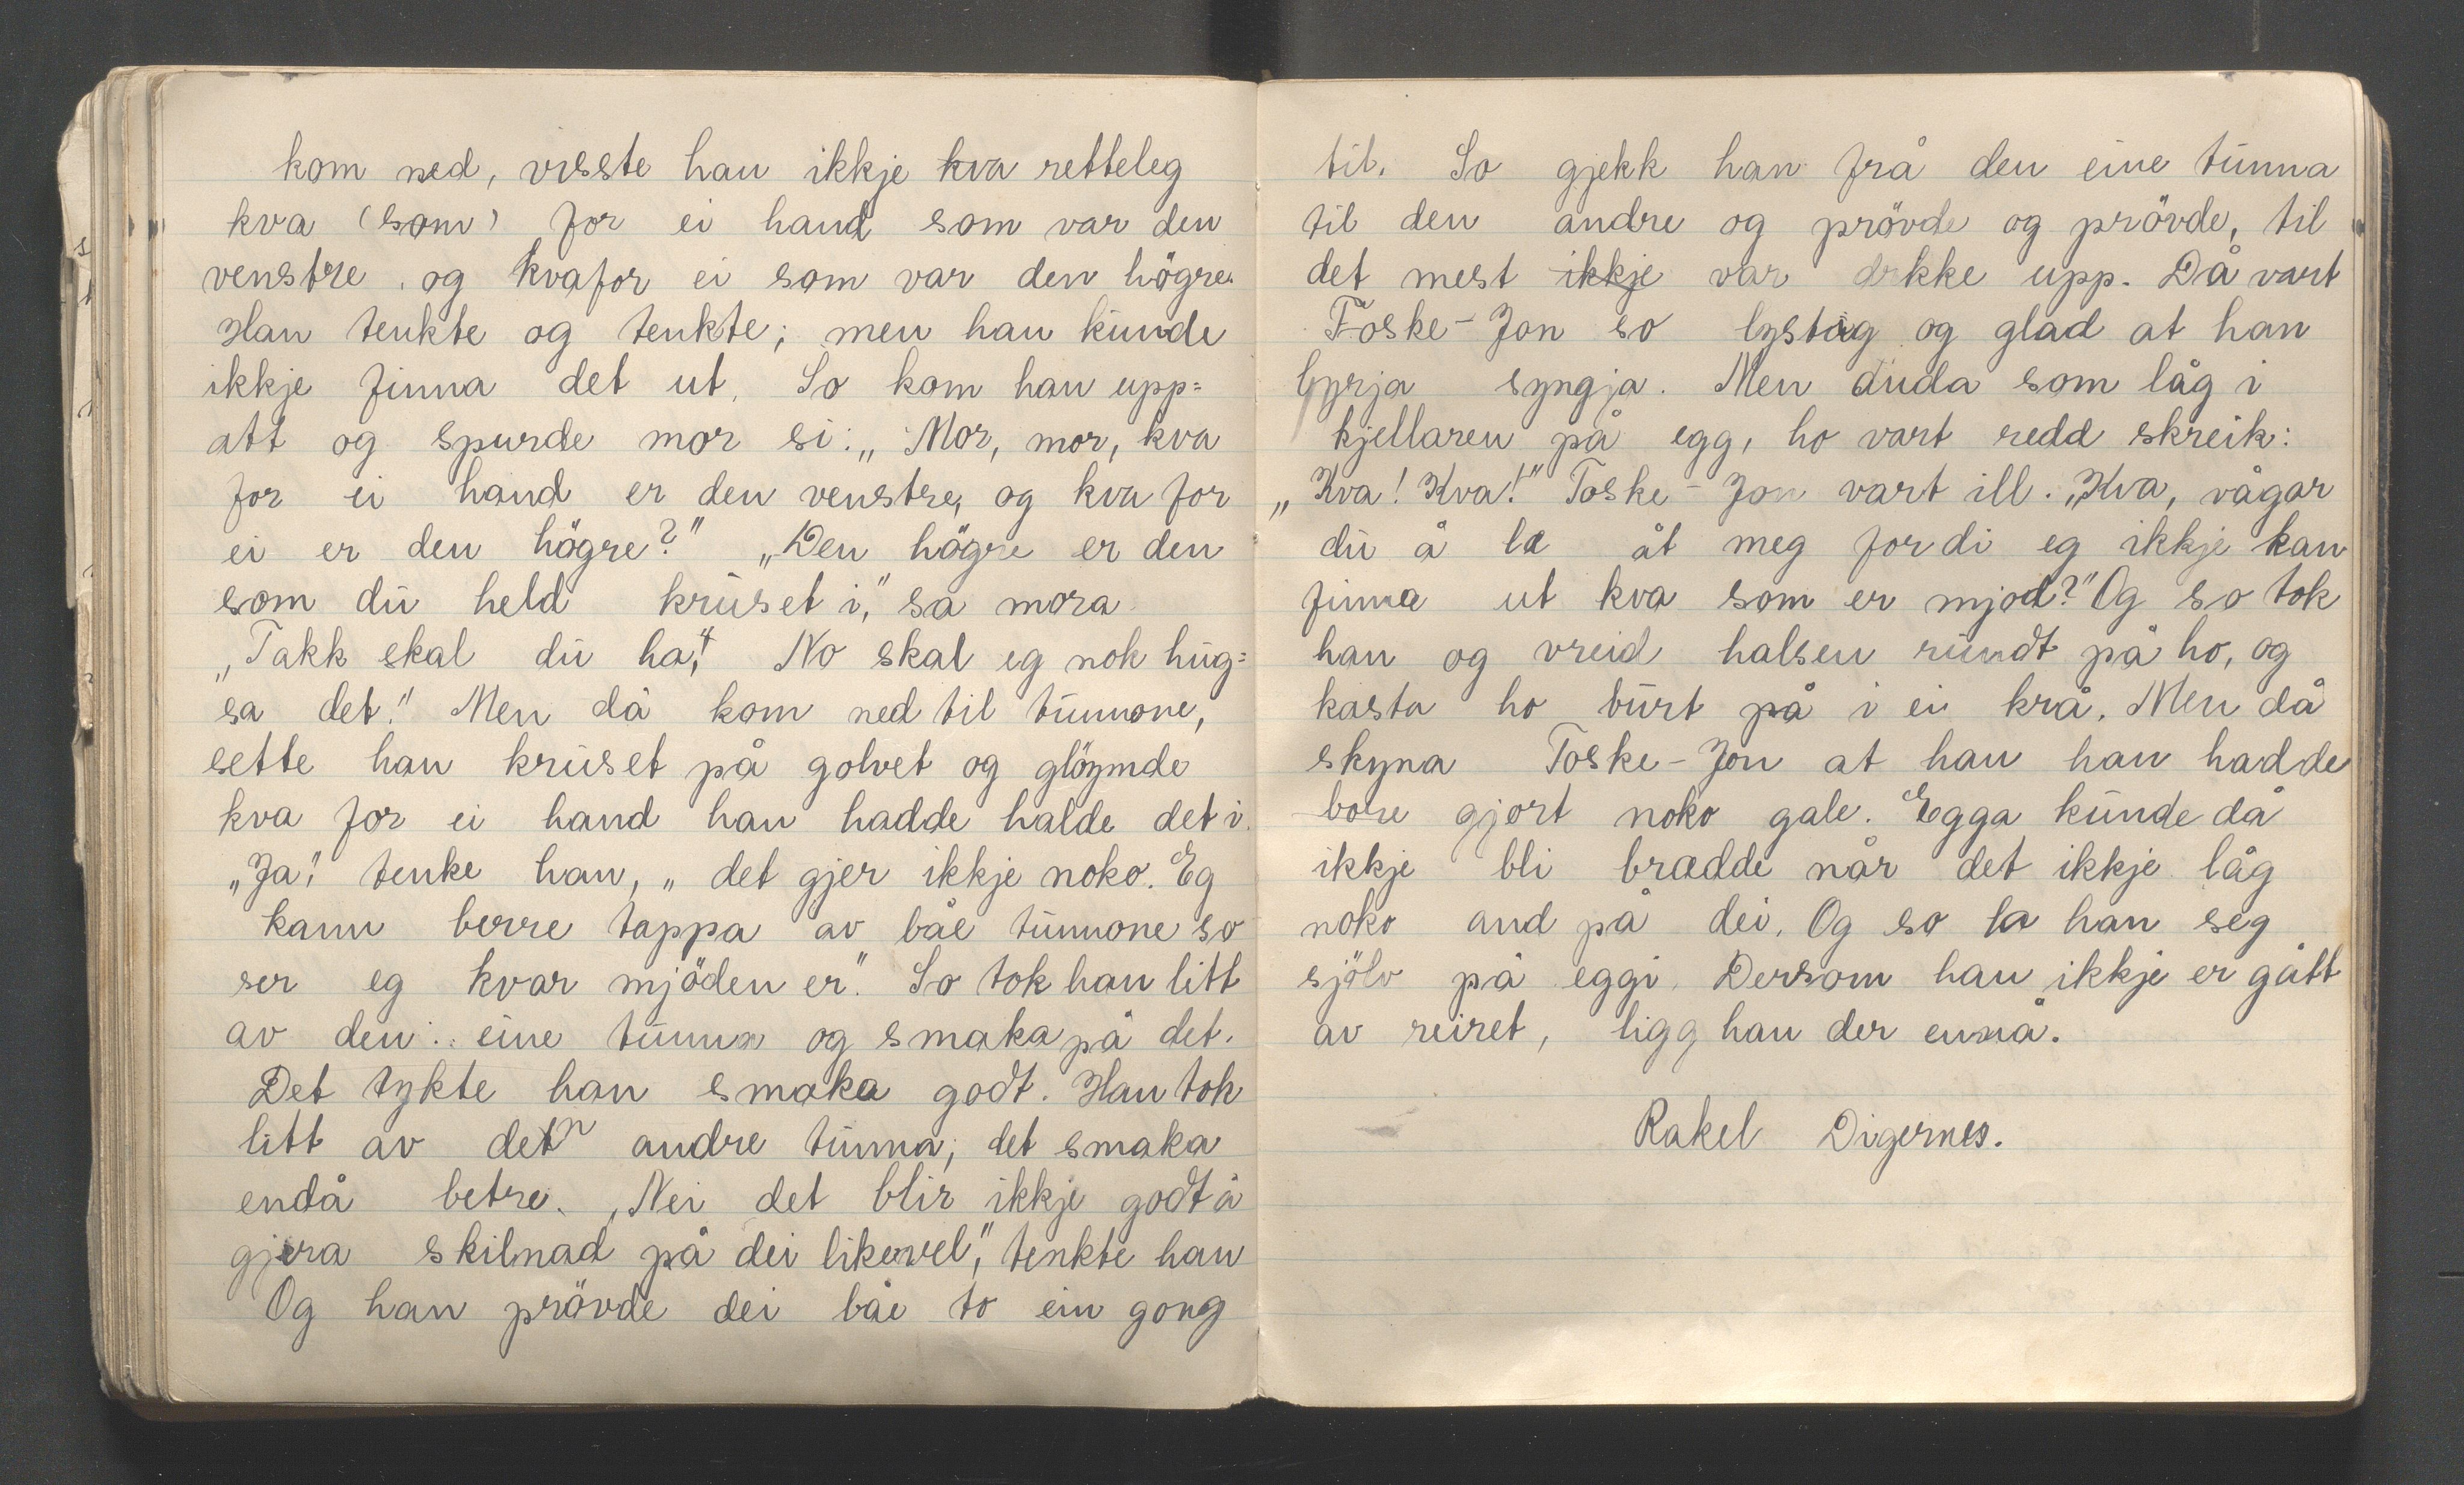 kom ned, visste han ikkje kva retteleg
kva (som) for ei hand som var den
venstre, og kvafor ei som var den högre.
Han tenkte og tenkte; men han kunde
ikkje finna det ut. So kom han upp=
att og spurde mor si: „Mor, mor, kva
for ei hand er den venstre, og kva for
ei er den högre?" „Den högre er den
som du held kruset i," sa mora
„Takk skal du ha," No skal eg nok hug=
sa det." Men då kom ned til tunnone,
sette han kruset på golvet og glöymde
kva for ei hand han hadde halde det i.
„Ja", tenke han, „det gjer ikkje noko. Eg
kann berre tappa av båe tunnone so
ser eg kvar mjöden er". So tok han litt
av den eine tunna og smaka på det.
Det tykte han smaka godt. Han tok
litt av detn andre tunna, det smaka
endå betre. „Nei det blir ikkje godt å
gjera skilnad på dei likevel," tenkte han
Og han prövde dei båe to ein gong
til. So gjekk han frå den eine tunna
til den andre og prövde og prövde, til
det mest ikkje var drkke upp. Då vart
Toske-Jon so lystig og glad at han
byrja syngja. Men anda som låg i
kjellaren på egg, ho vart redd skreik:
„Kva! Kva!" Toske-Jon vart ill. „Kva, vågar
du å la åt meg fordi eg ikkje kan
finna ut kva som er mjod?" Og so tok
han og vreid halsen rundt på ho, og
kasta ho burt på i ei krå. Men då
skyna Toske-Jon at han han hadde
bore gjort noko gale. Egga kunde då
ikkje bli brædde når det ikkje låg
noko and på dei. Og so la han seg
sjölv på eggi. Dersom han ikkje er gått
av reiret, ligg han der ennå.
Rakel Digernes.